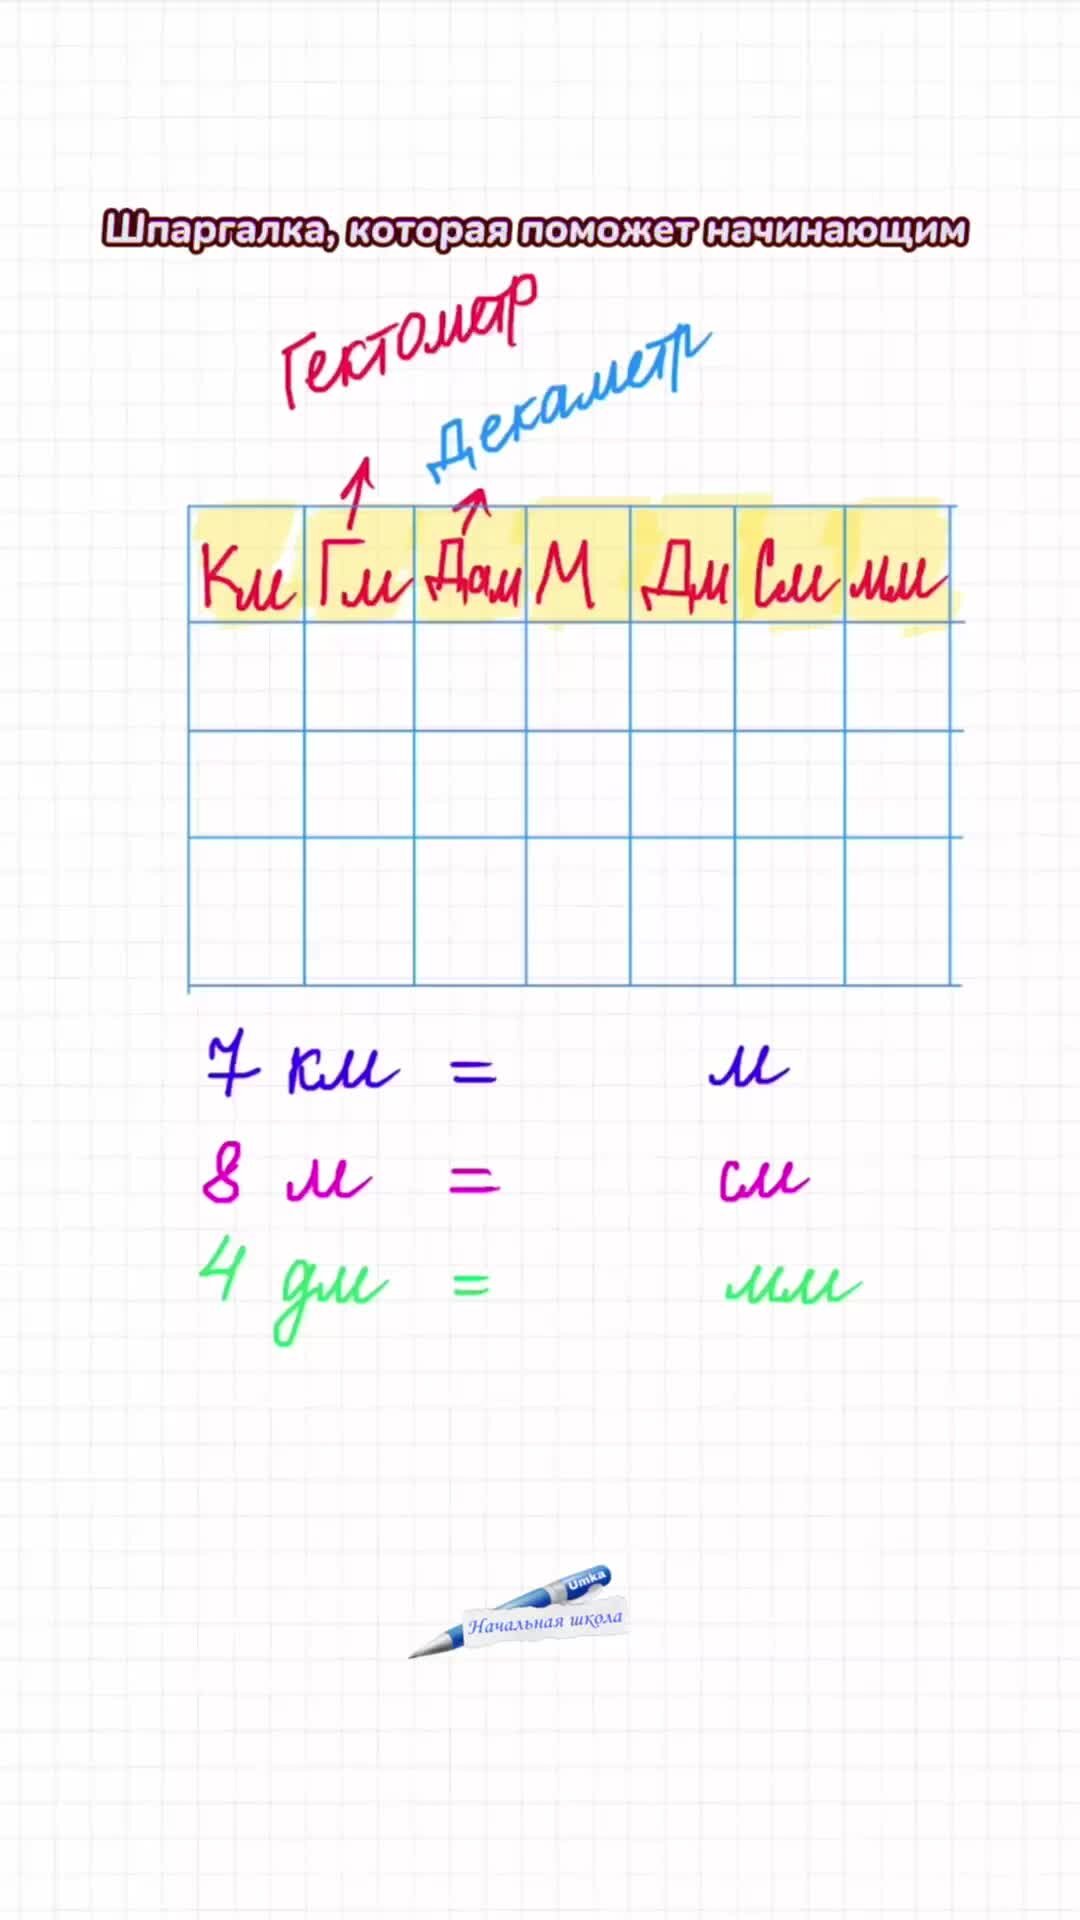 Шпаргалка, которая поможет начинающим
Гектометр
Декаметр
Км Гм Дам М Дм См мм
7 км = м
8 м = см
4 дм = мм
Umka
Начальная школа